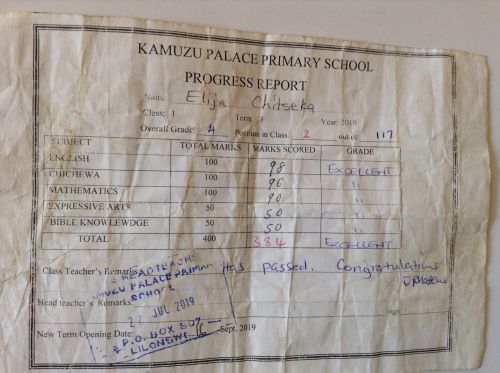 KAMUZU PALACE PRIMARY SCHOOL
PROGRESS REPORT
Name: Elija Chitseka
Class: 1 Term 3 Year: 2019
Overall Grade: 4 Position in Class: 2 out of 117
SUBJECT TOTAL MARKS MARKS SCORED GRADE
ENGLISH 100 98 EXCELLENT
CHICHEWA 100 96 "
MATHEMATICS 100 90 "
EXPRESSIVE ARTS 50 50 "
BIBLE KNOWLEWDGE 50 50 "
TOTAL 400 384 EXCELLENT
Class Teacher's Remarks: Has passed. Congratulations
HEADTEACHER
KAMUZU PALACE PRIMARY
SCHOOL
Head teacher's Remarks:
JUL 2019
Sign
New Term Opening Date: Sept, 2019
P.O. BOX 807
LILONGWE